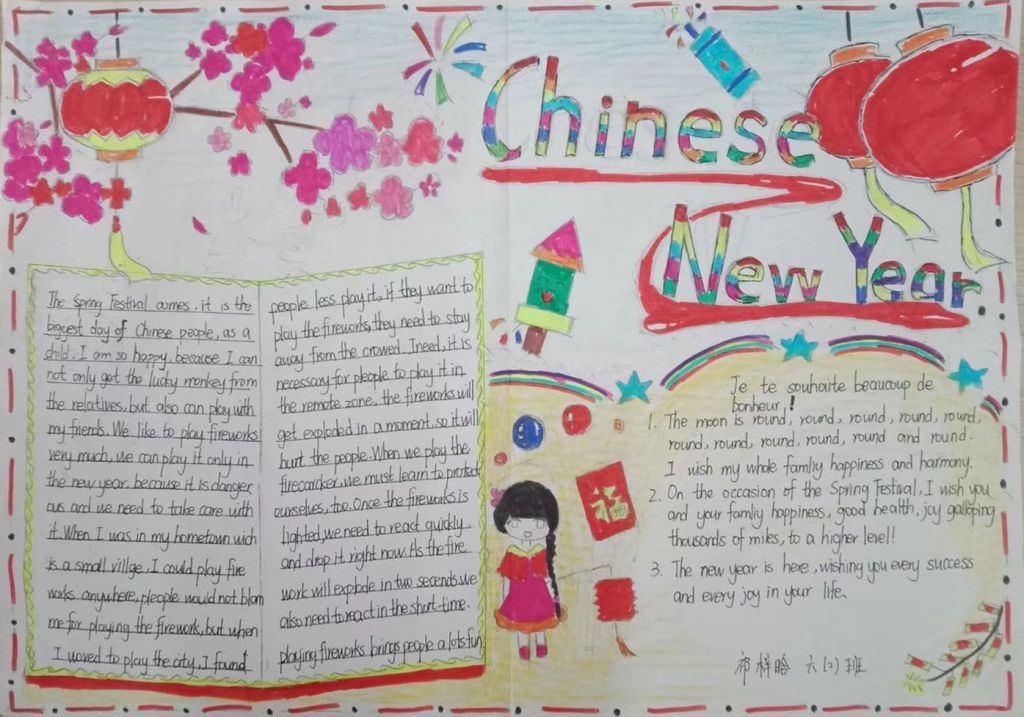 Chinese
New Year
The Spring Festival comes, it is the
biggest day of Chinese people, as a
child. I am so happy, because I can
not only get the lucky monkey from
the relatives, but also can play with
my friends. We like to play fireworks
very much, we can play it only in
the new year, because it is danger
ous and we need to take care with
it. When I was in my hometown wich
is a small villge. I could play fire
works anywhere, pleople would not blam
me for playing the firework, but when
I woved to play the city, I found
people less play it, if they want to
play the fireworks, they need to stay
away from the crowed. Ineed, it is
necessary for pleople to play it in
the remote zone, the fireworks will
get exploded in a moment, so it will
hurt the people. When we play the
firecarcker, we must learn to protect
ourselves, too. Once the fireworks is
lighted, we need to react quickly
and drop it right now. As the fire
work will explode in two seconds. we
also need to react in the short-time.
playing fireworks brings people a lots fun
福
Je te souhaite beaucoup de
bonheur!
1. The moon is round, round, round, round, round,
round, round, round, round, round and round.
I wish my whole famliy happiness and harmony.
2. On the occasion of the Spring Festival, I wish you
and your famliy happiness, good health, joy galloping
thousands of miles, to a higher level!
3. The new year is here, wishing you every success
and every joy in your life.
祁梓晗 六(2)班